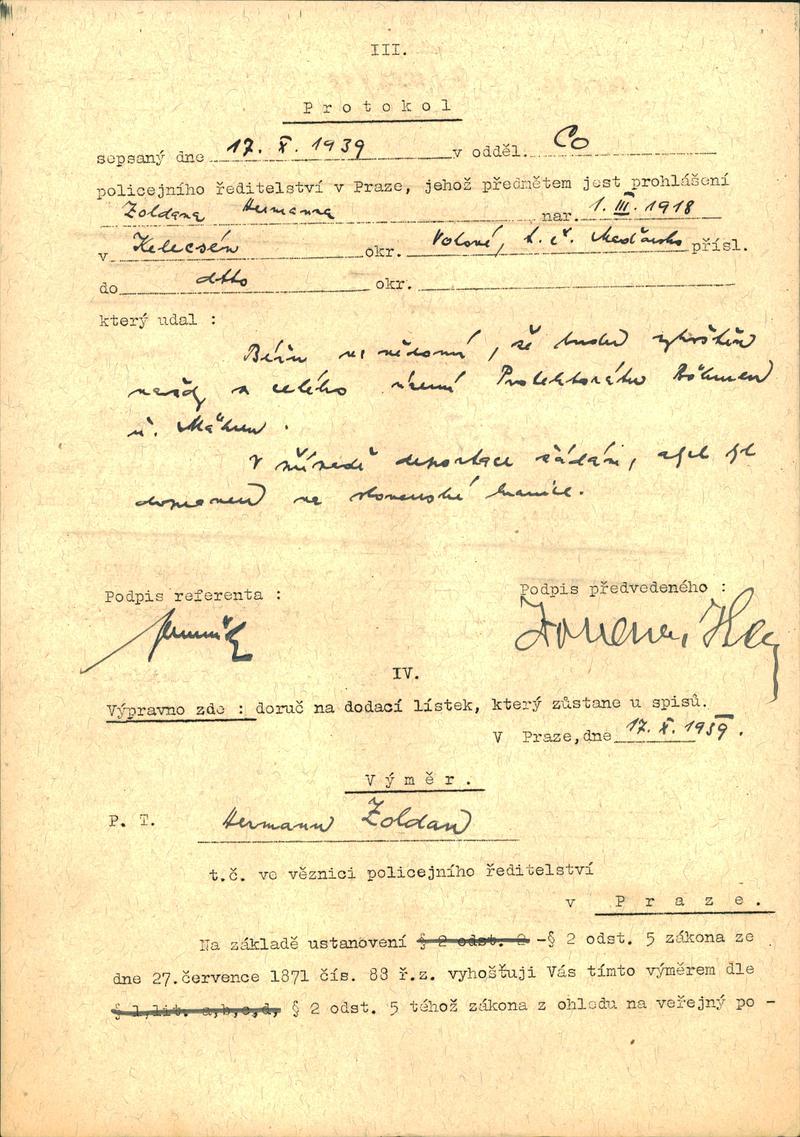 III.
Protokol
sepsaný dne 17. X. 1939 v odděl. Co
policejního ředitelství v Praze, jehož předmětem jest prohlášení
Zoldana Hermanna nar. 1. III. 1918
v Kelecsén okr. Volové, t. č. Maďarsko přísl.
do dtto okr.
který udal :
Běřu na vědomí, že budu vyhoštěn
navždy z celého území Protektorátu Böhmen
u. Mähren.
V případě deportace žádám, abych byl
dopraven na slovenské hranice.
Podpis referenta :
Podpis předvedeného :
IV.
Výpravno zde : doruč na dodací lístek, který zůstane u spisů.
V Praze, dne 17. X. 1939.
Výměr.
P. T. Hermann Zoldan
t.č. ve věznici policejního ředitelství
v Praze.
Na základě ustanovení § 2 odst. 2 -§ 2 odst. 5 zákona ze
dne 27.července 1871 čís. 88 ř.z. vyhošťuji Vás tímto výměrem dle
§ 1,lit. a,b,c,d, § 2 odst. 5 téhož zákona z ohledu na veřejný po -